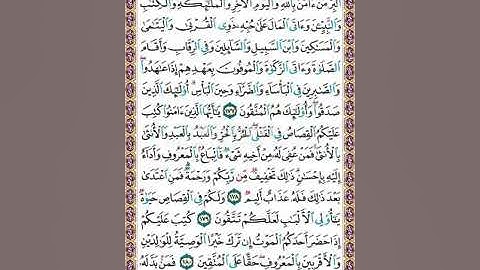 ٱلْبِرَّ مَنْ ءَامَنَ بِٱللَّهِ وَٱلْيَوْمِ ٱلْءَاخِرِ وَٱلْمَلَٰٓئِكَةِ وَٱلْكِتَٰبِ
وَٱلنَّبِيِّـۧنَ وَءَاتَى ٱلْمَالَ عَلَىٰ حُبِّهِۦ ذَوِى ٱلْقُرْبَىٰ وَٱلْيَتَٰمَىٰ
وَٱلْمَسَٰكِينَ وَٱبْنَ ٱلسَّبِيلِ وَٱلسَّآئِلِينَ وَفِى ٱلرِّقَابِ وَأَقَامَ
ٱلصَّلَوٰةَ وَءَاتَى ٱلزَّكَوٰةَ وَٱلْمُوفُونَ بِعَهْدِهِمْ إِذَا عَٰهَدُوا۟
وَٱلصَّٰبِرِينَ فِى ٱلْبَأْسَآءِ وَٱلضَّرَّآءِ وَحِينَ ٱلْبَأْسِ أُو۟لَٰٓئِكَ ٱلَّذِينَ
صَدَقُوا۟ وَأُو۟لَٰٓئِكَ هُمُ ٱلْمُتَّقُونَ ١٧٧ يَٰٓأَيُّهَا ٱلَّذِينَ ءَامَنُوا۟ كُتِبَ
عَلَيْكُمُ ٱلْقِصَاصُ فِى ٱلْقَتْلَى ٱلْحُرُّ بِٱلْحُرِّ وَٱلْعَبْدُ بِٱلْعَبْدِ وَٱلْأُنثَىٰ
بِٱلْأُنثَىٰ فَمَنْ عُفِىَ لَهُۥ مِنْ أَخِيهِ شَىْءٌ فَٱتِّبَاعٌۢ بِٱلْمَعْرُوفِ وَأَدَآءٌ
إِلَيْهِ بِإِحْسَٰنٍ ذَٰلِكَ تَخْفِيفٌ مِّن رَّبِّكُمْ وَرَحْمَةٌ فَمَنِ ٱعْتَدَىٰ
بَعْدَ ذَٰلِكَ فَلَهُۥ عَذَابٌ أَلِيمٌ ١٧٨ وَلَكُمْ فِى ٱلْقِصَاصِ حَيَوٰةٌ
يَٰٓأُو۟لِى ٱلْأَلْبَٰبِ لَعَلَّكُمْ تَتَّقُونَ ١٧٩ كُتِبَ عَلَيْكُمْ
إِذَا حَضَرَ أَحَدَكُمُ ٱلْمَوْتُ إِن تَرَكَ خَيْرًا ٱلْوَصِيَّةُ لِلْوَٰلِدَيْنِ
وَٱلْأَقْرَبِينَ بِٱلْمَعْرُوفِ حَقًّا عَلَى ٱلْمُتَّقِينَ ١٨٠ فَمَنۢ بَدَّلَهُۥ